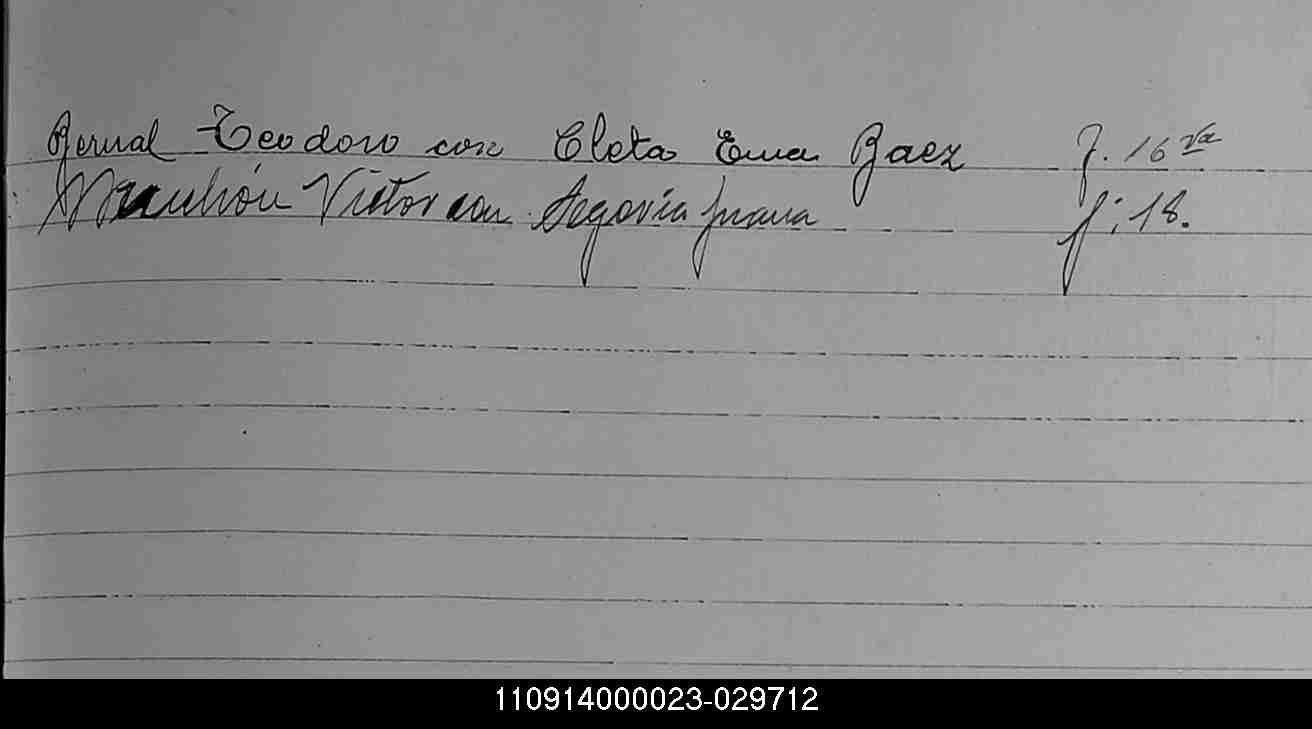 Bernal Teodoro con Cleta Ema Baez f. 16 vta
Victor con Segovia Juana f; 18.
110914000023-029712